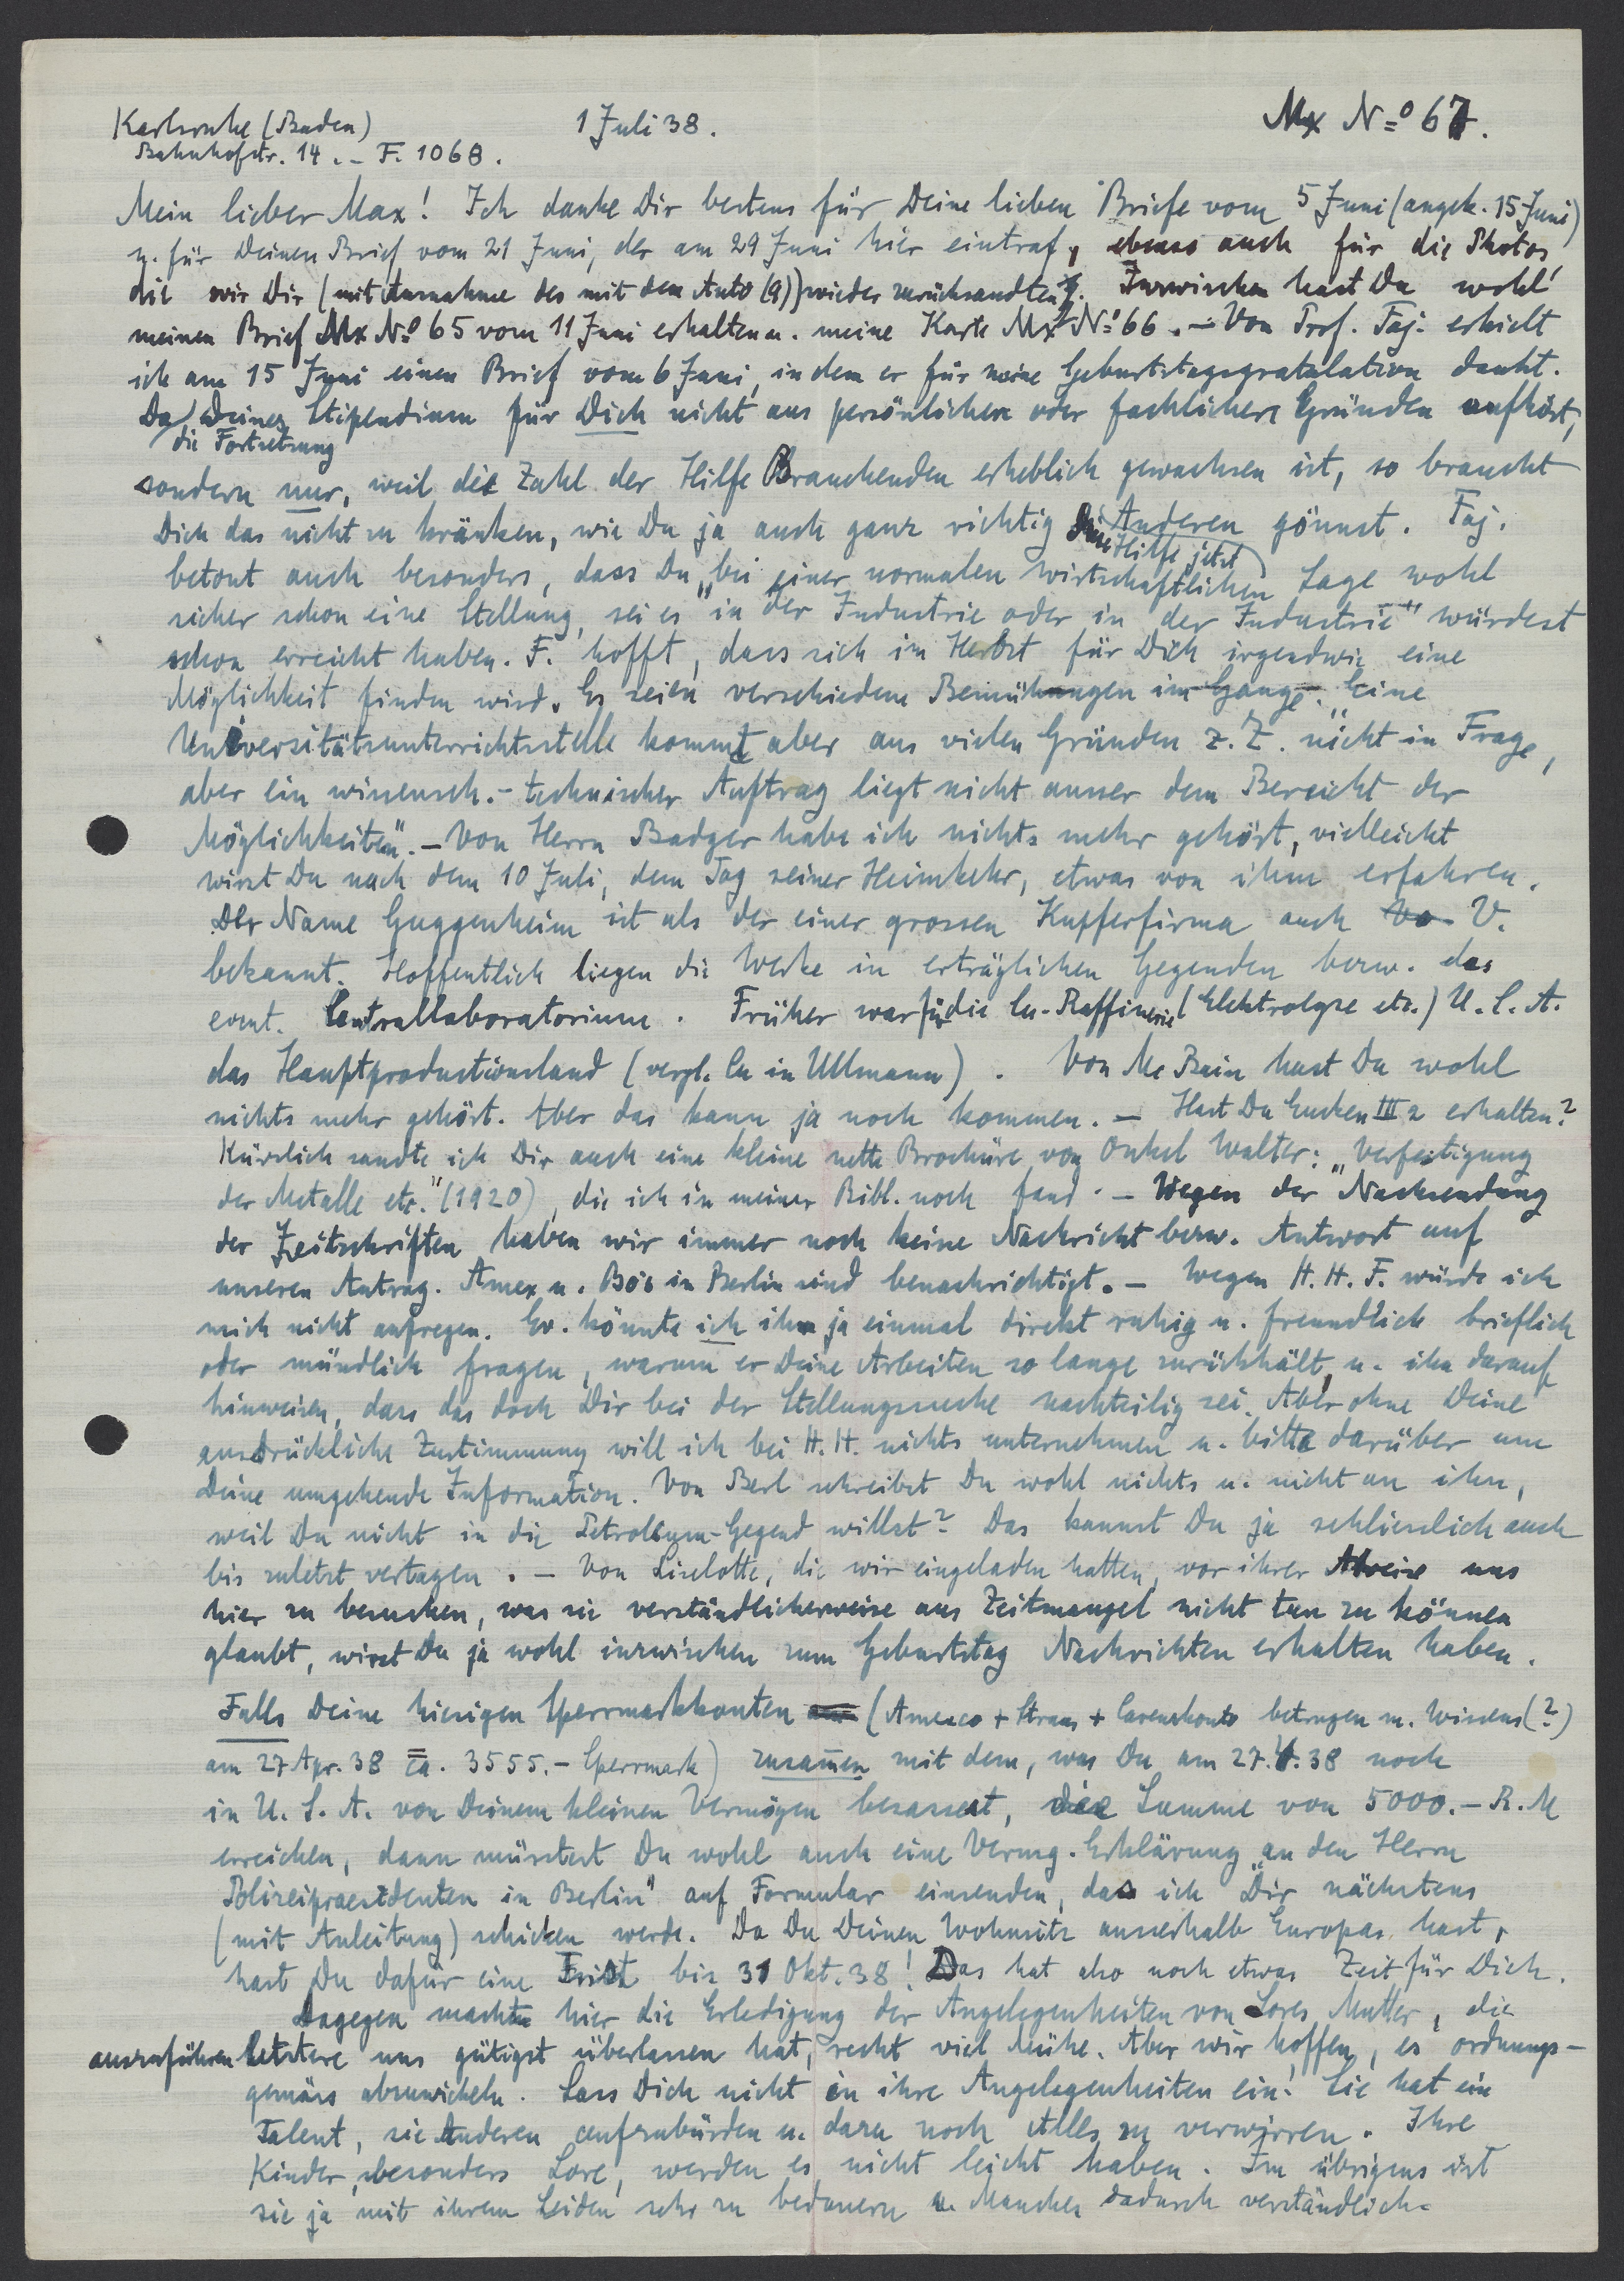 Karlsruhe (Baden) 1 Juli 38. Mx Nº 67.
Bahnhofstr. 14. - F. 1068.
Mein lieber Max! Ich danke Dir bestens für Deine lieben Briefe vom 5 Juni (angek. 15 Juni)
u. für Deinen Brief vom 21 Juni, der am 29 Juni hier eintraf, ebenso auch für die Photos,
die wir Dir (mit Ausnahme des mit dem Auto (9)) wieder zurücksandten. Inzwischen hast Du wohl
meinen Brief Mx Nº 65 vom 11 Juni erhalten u. meine Karte Mx Nº 66. - Von Prof. Faj. erhielt
ich am 15 Juni einen Brief vom 6 Juni, in dem er für meine Geburtstagsgratulation dankt.
Da die Fortsetzung Deines Stipendium für Dich nicht aus persönlichen oder fachlichen Gründen aufhört,
sondern nur, weil die Zahl der Hilfe Brauchenden erheblich gewachsen ist, so braucht
Dich das nicht zu kränken, wie Du ja auch ganz richtig diese Hilfe jetzt Anderen gönnst. Faj.
betont auch besonders, dass Du "bei einer normalen wirtschaftlichen Lage wohl
sicher schon eine Stellung, sei es in der Industrie oder in der Industrie" würdest
schon erreicht haben. F. hofft, dass sich im Herbst für Dich irgendwie eine
Möglichkeit finden wird. Es seien verschiedene Bemühungen im Gange. "Eine
Universitätsunterrichtsstelle kommt aber aus vielen Gründen z. Z. nicht in Frage,
aber ein wissensch.-technischer Auftrag liegt nicht ausser dem Bereicht der
Möglichkeiten". - Von Herrn Badger habe ich nichts mehr gehört, vielleicht
wirst Du nach dem 10 Juli, dem Tag seiner Heimkehr, etwas von ihm erfahren.
Der Name Guggenheim ist als der einer grossen Kupferfirma auch V.
bekannt. Hoffentlich liegen die Werke in erträglichen Gegenden bezw. das
event. Centrallaboratorium. Früher war für die Cu-Raffinerie (Elektrolyse etc.) U.S.A.
das Hauptproductionsland (vergl. Cu in Ullmann). Von Mc Bain hast Du wohl
nichts mehr gehört. Aber das kann ja noch kommen. - Hast Du Eucken III 2 erhalten?
Kürzlich sandte ich Dir auch eine kleine nette Brochüre von Onkel Walter: "Verfestigung
der Metalle etc." (1920), die ich in meiner Bibl. noch fand. - Wegen der Nachsendung
der Zeitschriften haben wir immer noch keine Nachricht bezw. Antwort auf
unseren Antrag. Amex u. Bös in Berlin sind benachrichtigt. - Wegen H. H. F. würde ich
mich nicht aufregen. Ev. könnte ich ihn ja einmal direkt ruhig u. freundlich brieflich
oder mündlich fragen, warum er Deine Arbeiten so lange zurückhält, u. ihn darauf
hinweisen, dass das doch Dir bei der Stellungssuche nachteilig sei. Aber ohne Deine
ausdrückliche Zustimmung will ich bei H. H. nichts unternehmen u. bitte darüber um
Deine umgehende Information. Von Berl schreibst Du wohl nichts u. nicht an ihn,
weil Du nicht in die Petroleum-Gegend willst? Das kannst Du ja schliesslich auch
bis zuletzt vertagen. - Von Liselotte, die wir eingeladen hatten, vor ihrer Abreise uns
hier zu besuchen, was sie verständlicherweise aus Zeitmangel nicht tun zu können
glaubt, wirst Du ja wohl inzwischen zum Geburtstag Nachrichten erhalten haben.
Falls Deine hiesigen Sperrmarkkonten (Amexco + Straus + Careuskonto betrugen m. Wissens (?)
am 27 Apr. 38 ca. 3555.- Sperrmark) zusammen mit dem, was Du am 27.4.38 noch
in U. S. A. von Deinem kleinen Vermögen besassest, die Summe von 5000.- R. M
erreichen, dann müsstest Du wohl auch eine Vermg. Erklärung "an den Herrn
Polizeipraesidenten in Berlin" auf Formular einsenden, das ich Dir nächstens
(mit Anleitung) schicken werde. Da Du Deinen Wohnsitz ausserhalb Europas hast,
hast Du dafür eine Frist bis 31 Okt. 38! Das hat also noch etwas Zeit für Dich.
Dagegen machte hier die Erledigung der Angelegenheiten von Lores Mutter, die
auszuführen letztere uns gütigst überlassen hat, recht viel Mühe. Aber wir hoffen, es ordnungs-
gemäss abzuwickeln. Lass Dich nicht in ihre Angelegenheiten ein! Sie hat ein
Talent, sie Anderen aufzubürden u. dazu noch Alles zu verwirren. Ihre
Kinder, besonders Lore, werden es nicht leicht haben. Im übrigens ist
sie ja mit ihrem Leiden sehr zu bedauern u. Manches dadurch verständlich.